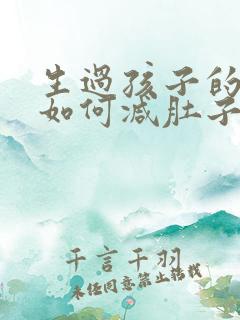 生过孩子的
如何减肚子
千言千羽
未经同意禁止转载